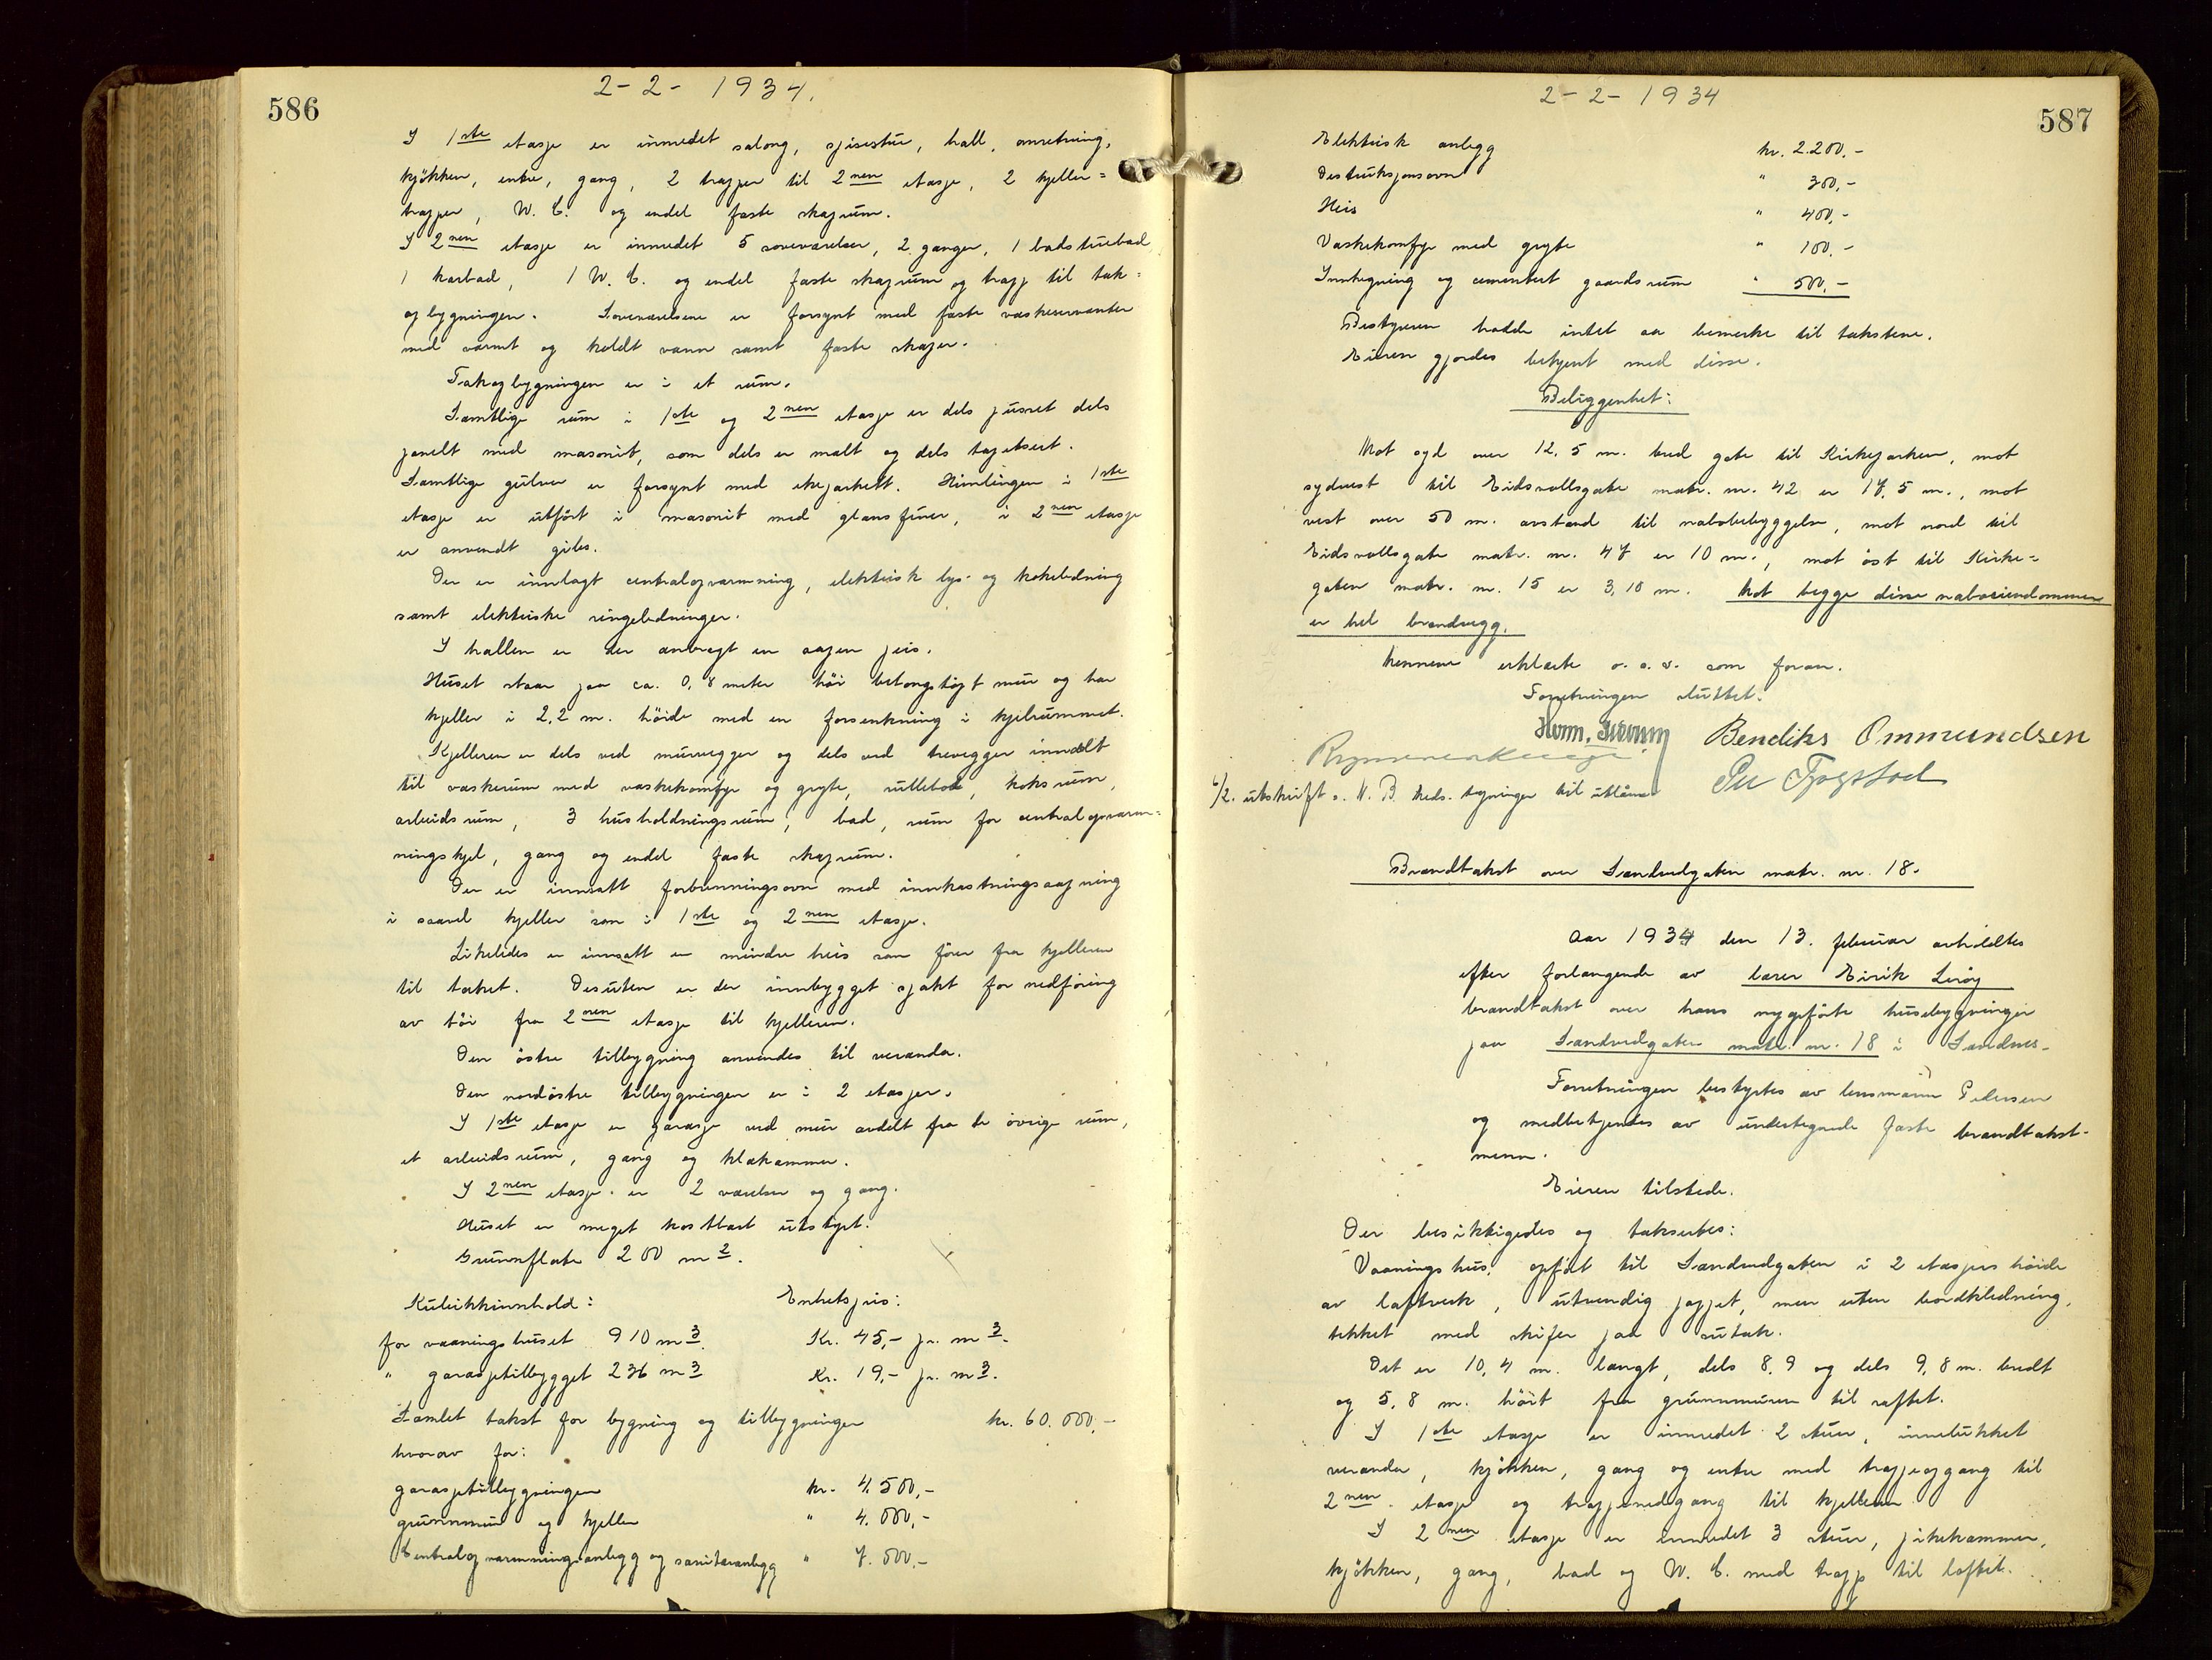 586
2-2-1934.
I 1ste etasje er innredet salong, spisestue, hall, anretning,
kjøkken, entre, gang, 2 trapper til 2nen etasje, 2 kjeller=
trapper, W.C. og endel faste skaprum.
I 2nen etasje er innredet 5 soveværelser, 2 ganger, 1 badstuebad
1 karbad, 1 W.C. og endel faste skaprum og trapp til tak=
opbygningen. Soveværelsene er forsynt med faste vaskeservanter
med varmt og koldt vann samt faste skaper.
Takopbygningen er i et rum.
Samtlige rum i 1ste og 2nen etasje er dels pusset dels
panelt med masonit, som dels er malt og dels tapetsert.
Samtlige gulver er forsynt med ekeparkett. Himlingen i 1ste
etasje er utført i masonit med glansfiner, i 2nen etasje
er anvendt gibs.
Der er innlagt centralopvarmning, elektrisk lys- og kokeledning
samt elektriske ringeledninger.
I hallen er der anbragt en aapen peis.
Huset staar paa ca. 0,8 meter høi betongstøpt mur og har
kjeller i 2,2 m. høide med en forsenkning i kjelrummet.
Kjelleren er dels ved murvegger og dels ved trevegger inndelt
til vaskerum med vaskekomfyr og gryte, rullebod, koksrum,
arbeidsrum, 3 husholdningsrum, bad, rum for centralopvarm=
ningskjel, gang og endel faste skaprum.
Der er innsatt forbrenningsovn med innkastningsaapning
i saavel kjeller som i 1ste og 2nen etasje.
Likeledes er innsatt en mindre heis som fører fra kjelleren
til taket. Desuten er der innbygget sjakt for nedføring
av tøi fra 2nen etasje til kjelleren.
Den østre tilbygning anvendes til veranda.
Den nordøstre tilbygningen er i 2 etasjer.
I 1ste etasje er garasje ved mur avdelt fra de øvrige rum,
et arbeidsrum, gang og klækammer.
I 2nen etasje er 2 værelser og gang.
Huset er meget kostbart utstyrt.
Grunnflate 200 m2.
Kubikkinnhold: Enhetspris:
for vaaningshuset 910 m3. Kr. 45,- pr. m3.
" garasjetilbygget 236 m3 Kr. 19,- pr. m3.
Samlet takst for bygning og tilbygninger kr. 60.000,-
hvorav for:
garasjetilbygningen kr. 4.500,-
grunnmur og kjeller " 4.000,-
Centralopvarmningsanlegg og sanitæranlegg " 7.000,-
2-2-1934
587
Elektrisk anlegg kr. 2.200,-
Destruksjonsovn " 300,-
Heis " 400,-
Vaskekomfyr med gryte " 100,-
Innhegning og cementert gaardsrum " 500,-
Bestyreren hadde intet aa bemerke til takstene.
Eieren gjordes bekjent med disse.
Beliggenhet:
Mot syd over 12,5 m. bred gate til Kirkeparken, mot
sydvest til Eidsvollsgate matr. nr. 42 er 17,5 m., mot
vest over 50 m. avstand til nabobebyggelse, mot nord til
Eidsvollsgate matr. nr. 47 er 10 m., mot øst til Kirke=
gaten matr. nr. 15 er 3,10 m. Mot begge disse naboeiendommer
er hel brandvegg.
Mennene erklærte o.s.v. som foran.
Forretningen sluttet.
Bendiks Ommundsen
6/2. utskrift s. N. B. Meds. tegninger til utlåns
Brandtakst over Sandvedgaten matr. nr. 18.
Aar 1934 den 13. februar avholdtes
efter forlangende av lærer Eirik Lerøy
brandtakst over hans nyopførte husebygninger
paa Sandvedgaten matr. nr. 18 i Sandnes.
Forretningen bestyrtes av lensmann Pedersen
og medbetjentes av undertegnede faste brandtakst-
menn.
Eieren tilstede.
Der besiktigedes og taksertes:
Vaaningshus, opført til Sandvedgaten i 2 etasjers høide
av laftverk, utvendig pappet, men uten bordklædning,
tekket med skifer paa sutak.
Det er 10,4 m. langt, dels 8,9 og dels 9,8 m. bredt
og 5,8 m. høit fra grunnmuren til raftet.
I 1ste etasje er innredet 2 stuer, innelukket
veranda, kjøkken, gang og entre med trappeopgang til
2nen etasje og trappenedgang til kjelleren.
I 2nen etasje er innredet 3 stuer, pikekammer,
kjøkken, gang, bad og W.C. med trapp til loftet.